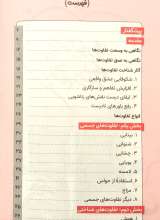 (فهرست)
پیشگفتار
مقدمه
نگاهی به وسعت تفاوت‌ها
نگاهی به عمق تفاوت‌ها
آثار شناخت تفاوت‌ها
۱. شکوفایی عشق واقعی
۲. افزایش تفاهم و سازگاری
۳. ایفای درست نقش‌های زناشویی
۴. رفع باورهای نادرست
انواع تفاوت‌ها
بخش یکم: تفاوت‌های جسمی
۱. بینایی
۲. شنوایی
۳. چشایی
۴. بویایی
۵. لامسه
۶. استفاده از حواس
۷. مزاج
۸. دیگر تفاوت‌های جسمی
بخش دوم: تفاوت‌های شناختی